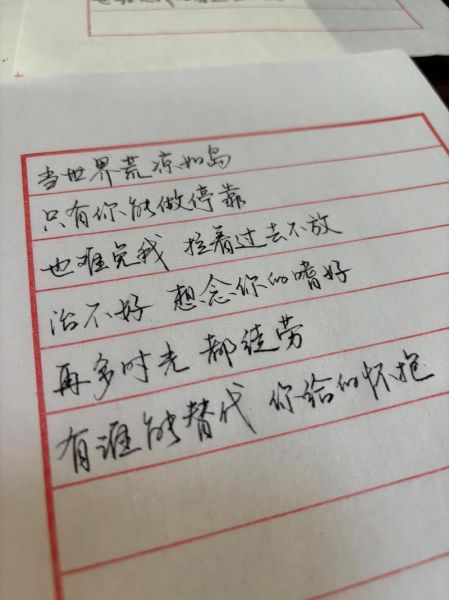 当世界荒凉如岛
只有你能做停靠
也难免我 拉着过去不放
治不好 想念你的嗜好
再多时光 都徒劳
有谁能替代 你给的怀抱